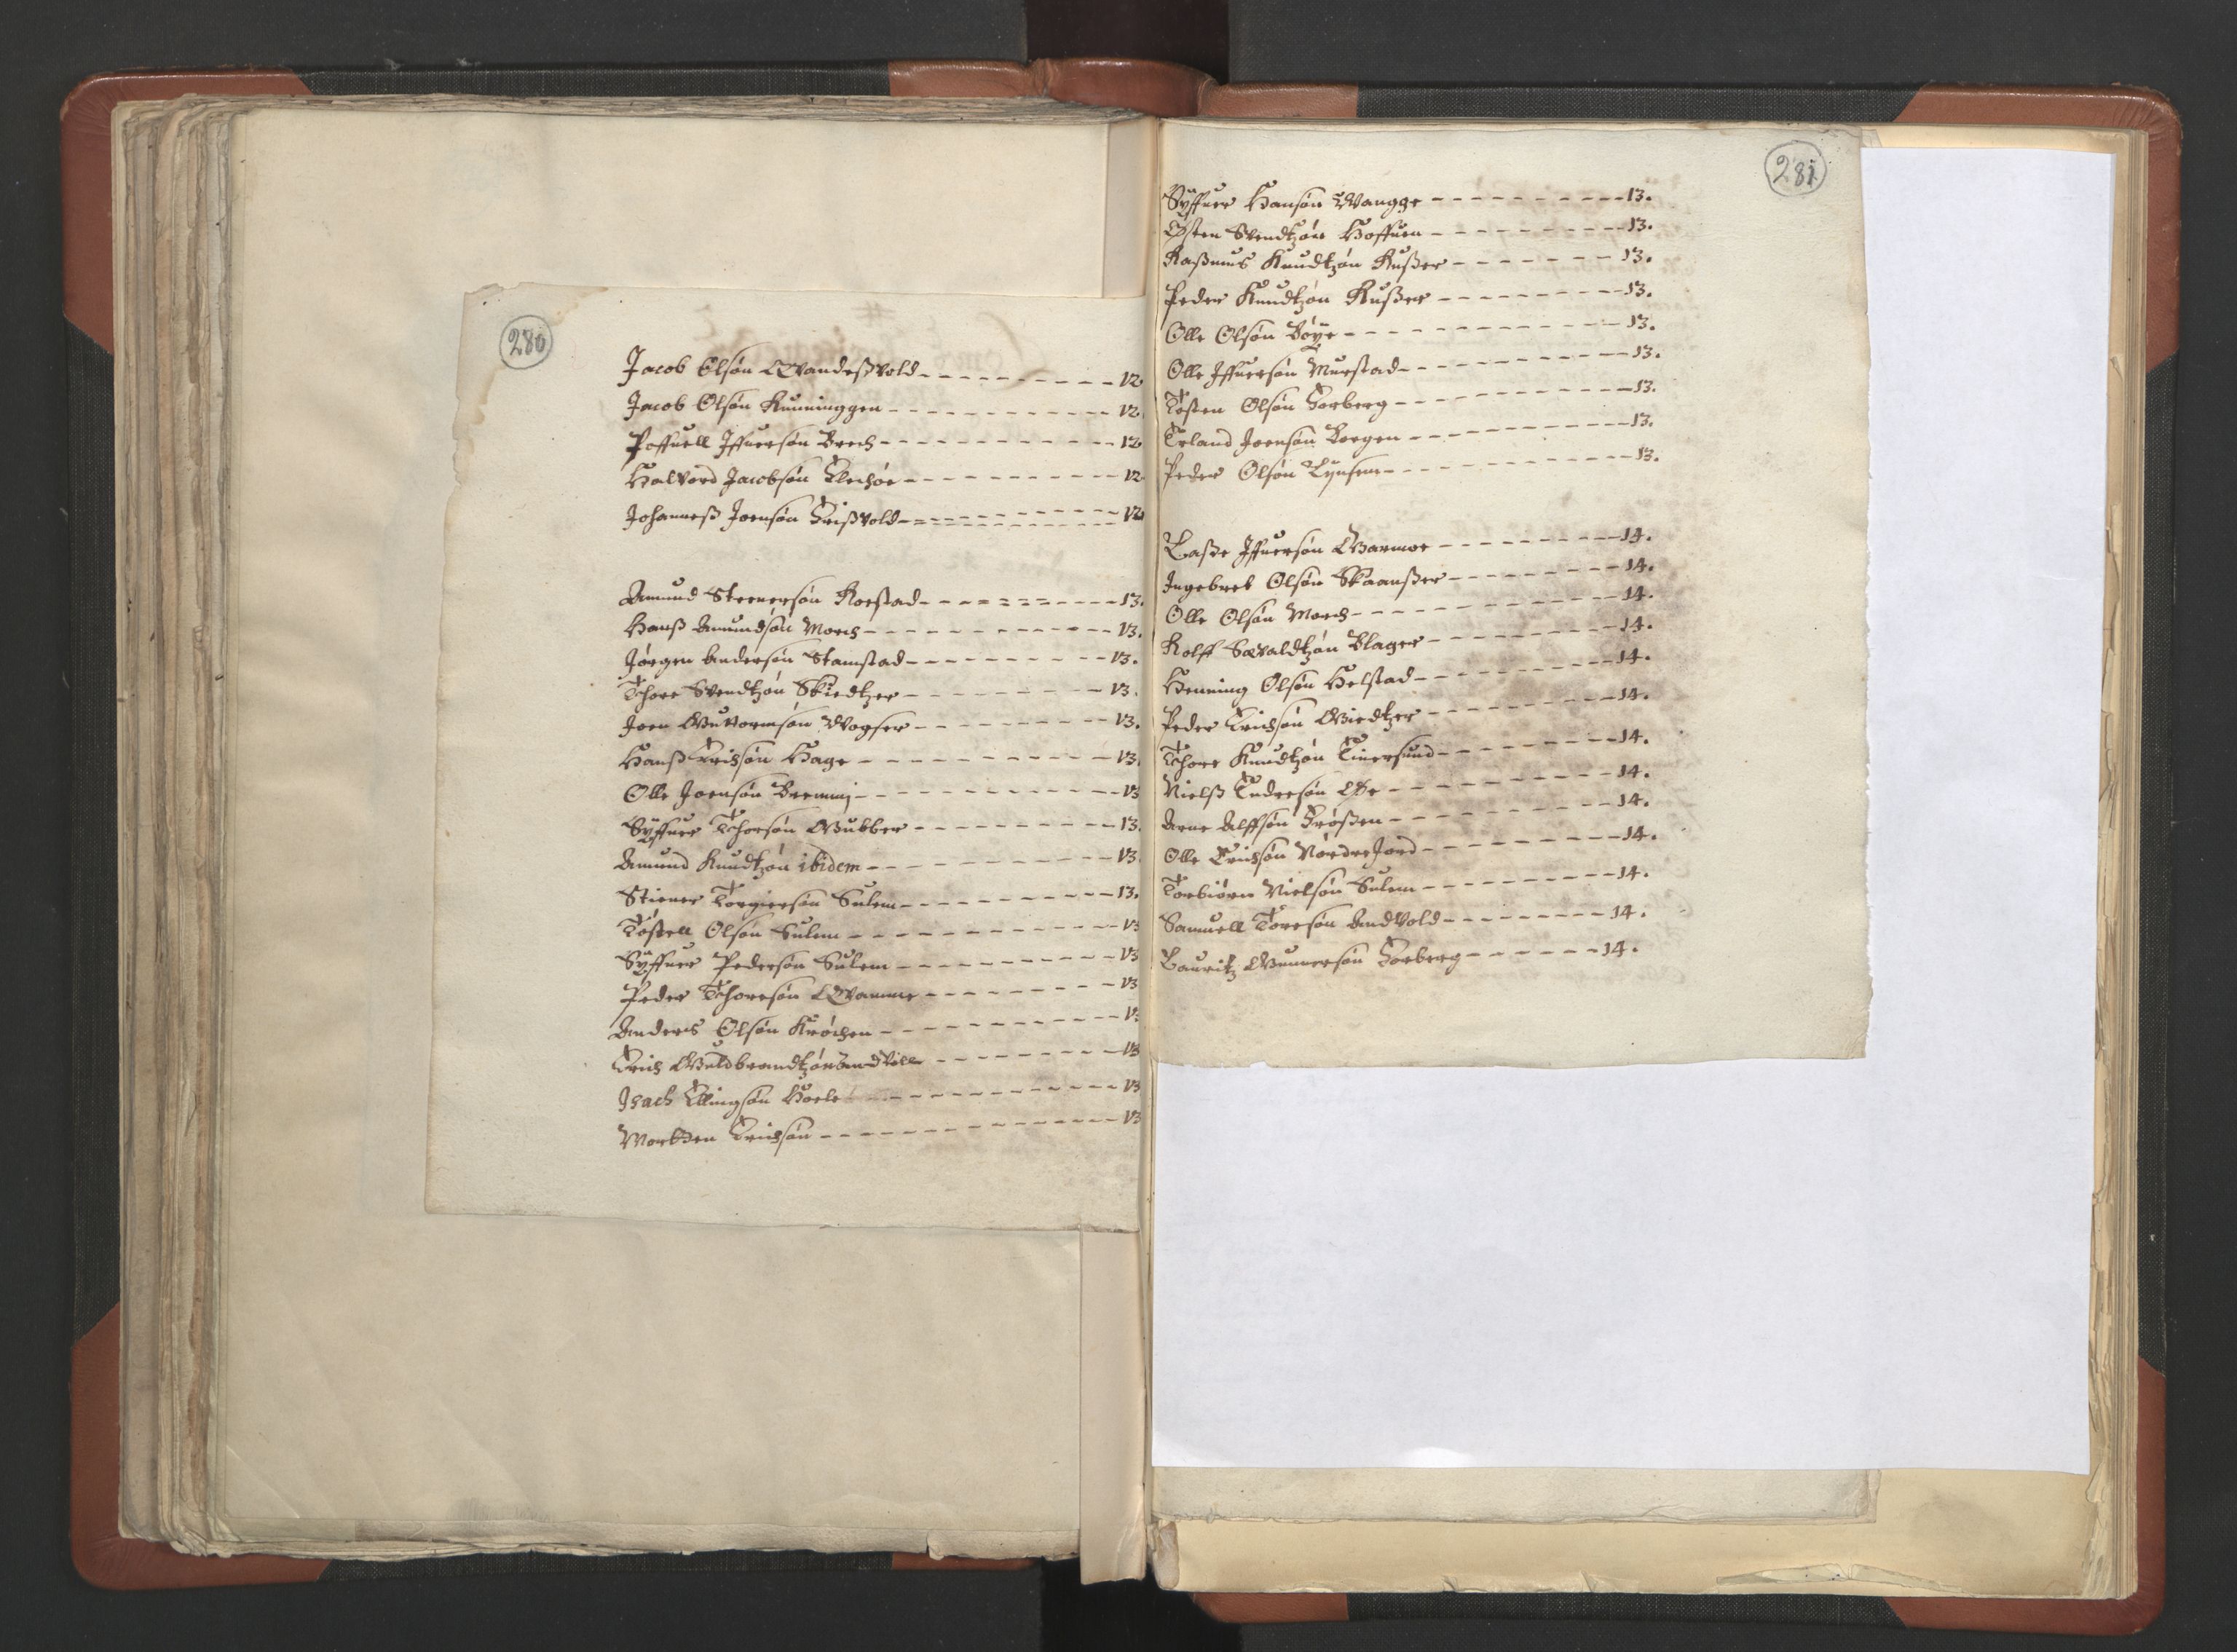 280
Jacob Olsøn Qvandeßvold - - - - - - - - - - 12
Jacob Olsøn Runninggen - - - - - - - - - - - 12
Poffuell Iffuersøn Brech - - - - - - - - - - - 12
Halvord Jacobsøn Klechøe - - - - - - - - - - 12
Johanneß Joensøn Frißvold - - - - - - - - - - 12
Amund Steenersøn Roestad - - - - - - - - - - 13.
Hanß Amundsøn Morch - - - - - - - - - - - 13.
Jørgen Andersøn Stamstad - - - - - - - - - 13.
Thore Svendtzøn Skiedtzer - - - - - - - - - 13.
Joen Guttormsøn Wogser - - - - - - - - - 13.
Hanß Erichsøn Hage - - - - - - - - - - - 13.
Olle Joensøn Bremmj - - - - - - - - - - - 13
Syffuer Thorsøn Gubber - - - - - - - - - - 13.
Amund Knudtzøn ibidem - - - - - - 13.
Stiener Torgiersøn Sulem - - - - - - - - - - 13.
Tosten Olsøn Sulem - - - - - - - - - - - 13
Syffuer Pedersøn Sulem - - - - - - - - - - 13
Peder Thoresøn Qvamme - - - - - - - - - 13
Anders Olsøn Krøchen - - - - - - - - - - 13
Erich Guldbrandtzøn - - - - - - - - 13
Isach Ellingsøn Hoele - - - - - - - - - - - 13
Mortten Erichsøn - - - - - - - - - - - - - 13
281
Syffuer Hansøn Wangge - - - - - - - - - - 13.
Østen Svendtzøn Hoffuen - - - - - - - - - 13.
Raßmus Knudtzøn Rußer - - - - - - - 13.
Peder Knudtzøn Rußer - - - - - - - - - 13.
Olle Olsøn Bøye - - - - - - - - - - - - - 13.
Olle Iffuersøn Murstad - - - - - - - - - - 13.
Tosten Olsøn Forberg - - - - - - - - - - 13.
Erland Joensøn Borgen - - - - - - - - - - 13.
Peder Olsøn Lynsem - - - - - - - - - - - 13.
Laße Iffuersøn Garmoe - - - - - - - - - - 14.
Ingebret Olsøn Skaanßer - - - - - - - - - 14.
Olle Olsøn Morch - - - - - - - - - - - - 14.
Rolff Sævaldtzøn Blager - - - - - - - - - 14.
Henning Olsøn Helstad - - - - - - - - - 14.
Peder Erichsøn Giedtzer - - - - - - - - - 14.
Thore Knudtzøn Tinersund - - - - - - - - 14.
Nielß Endresøn Øye - - - - - - - - - - 14.
Arne Alffsøn Frøßen - - - - - - - - - - 14.
Olle Erichsøn Nørdrejord - - - - - - - - - 14.
Torbiørn Nielsøn Sulem - - - - - - - - - - 14.
Samuell Toresøn Andvold - - - - - - - - - 14.
Lauritz Gunnersøn Forberg - - - - - - 14.